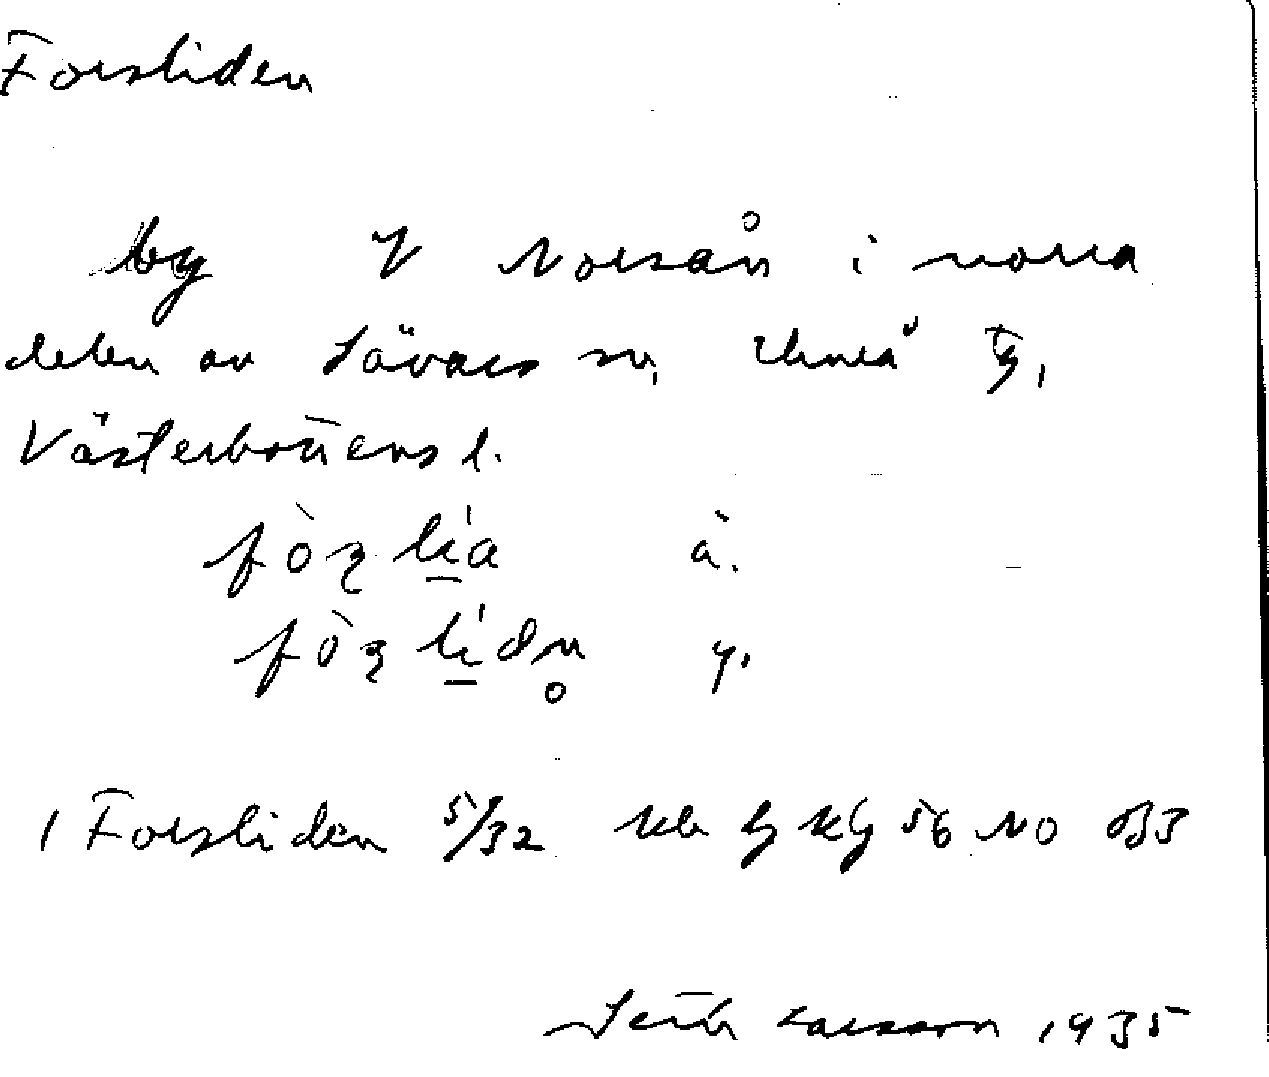 Forsliden
by V Norsån i norra
delen av Sävars sn, Umeå tg,
Västerbottens l.
fòʂlía ä.
fòʂlídn̥ y.
1 Forsliden 5/32 56 NO
Seth Larsson 1935